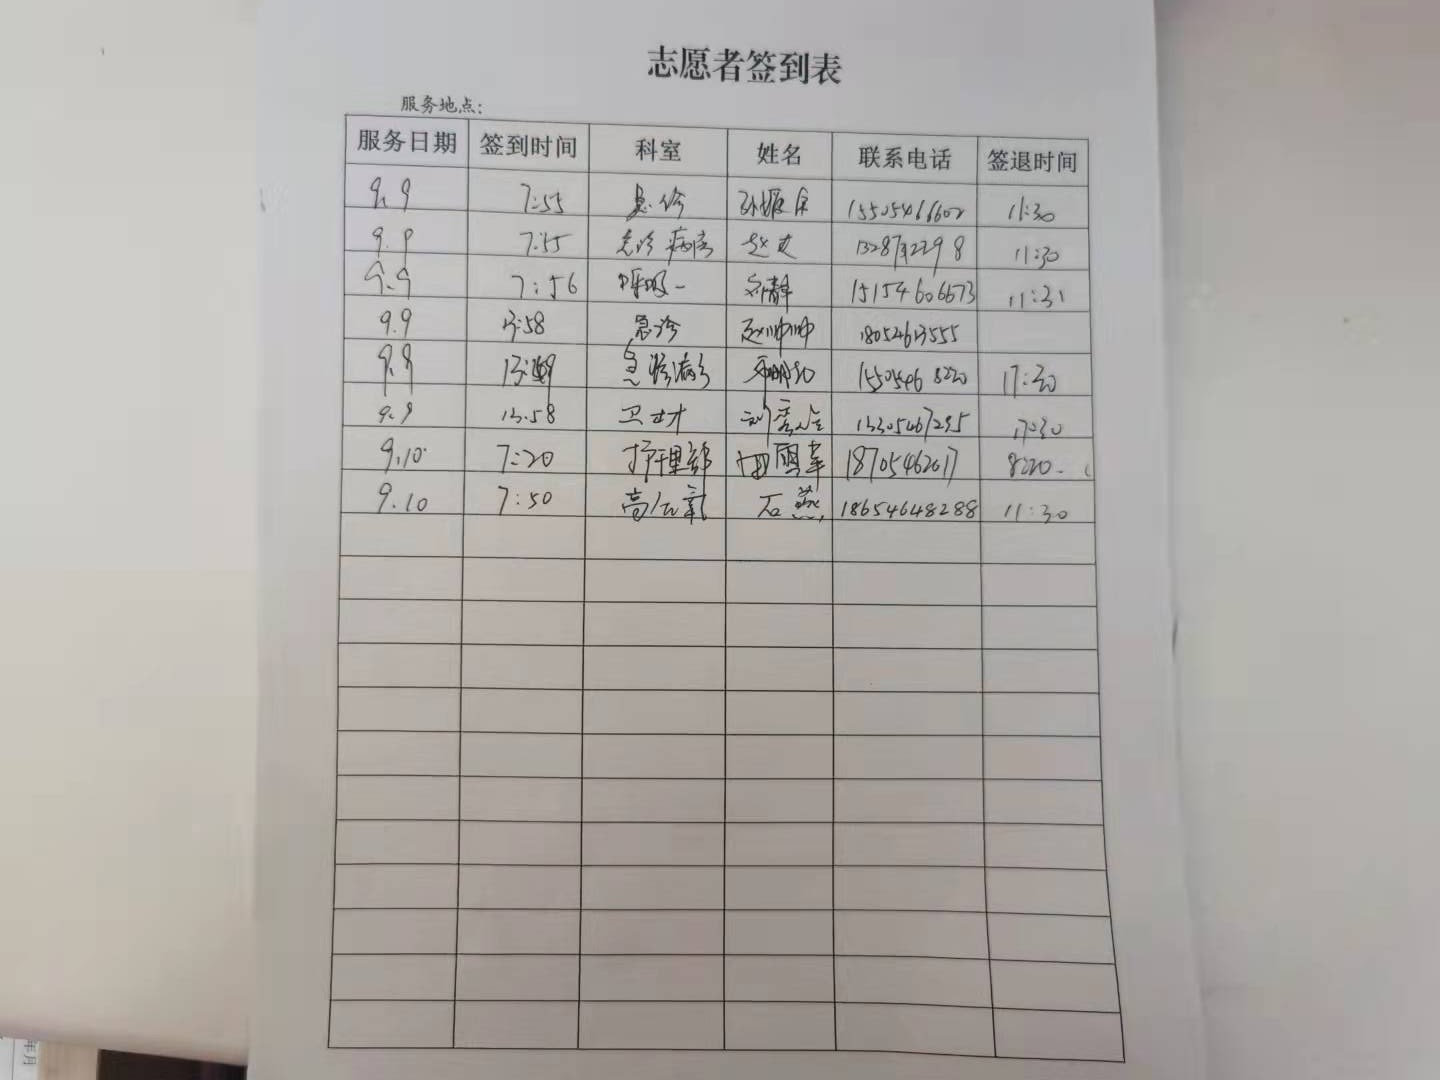 志愿者签到表
服务地点:
服务日期 签到时间 科室 姓名 联系电话 签退时间
9.9 7:55 急诊 15505466602 11:30
9.9 7:55 急诊病房 赵 11:30
9.9 7:56 呼吸一 静 15154606673 11:31
9.9 13:58 急诊 赵帅帅
9.9 急诊病 1550546 8220 17:30
9.9 13.58 13305467295 17:30
9.10 7:20 护理部 田 18705462017 8:20
9.10 7:50 高压氧 石燕 18654648288 11:30
年月